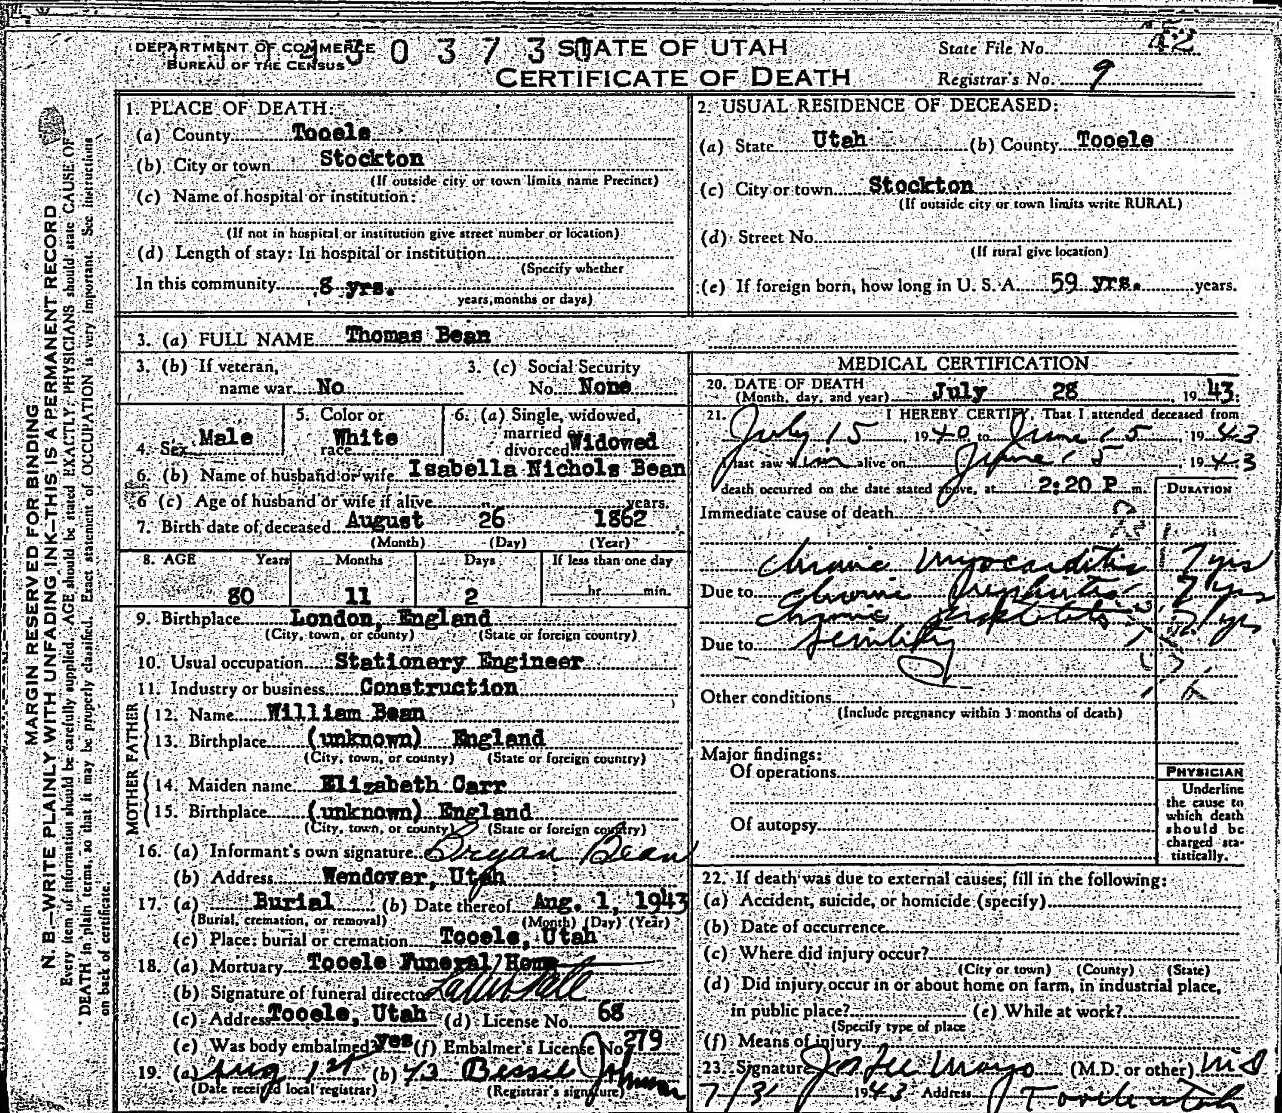 DEPARTMENT OF COMMERCE
BUREAU OF THE CENSUS
3 0 3 7 3
STATE OF UTAH
CERTIFICATE OF DEATH
State File No.
Registrar's No. 9
MARGIN RESERVED FOR BINDING
N. B.—WRITE PLAINLY WITH UNFADING INK—THIS IS A PERMANENT RECORD
Every item of information should be carefully supplied. AGE should be stated EXACTLY. PHYSICIANS should state CAUSE OF
DEATH in plain terms, so that it may be properly classified. Exact statement of OCCUPATION is very important. See instructions
on back of certificate.
1. PLACE OF DEATH:
(a) County Tooele
(b) City or town Stockton
(If outside city or town limits name Precinct)
(c) Name of hospital or institution:
(If not in hospital or institution give street number or location)
(d) Length of stay: In hospital or institution
(Specify whether
In this community 8 yrs.
years, months or days)
2. USUAL RESIDENCE OF DECEASED:
(a) State Utah (b) County Tooele
(c) City or town Stockton
(If outside city or town limits write RURAL)
(d) Street No.
(If rural give location)
(e) If foreign born, how long in U. S. A. 59 yrs. years.
3. (a) FULL NAME Thomas Bean
3. (b) If veteran,
name war No
3. (c) Social Security
No. None
4. Sex Male
5. Color or
race White
6. (a) Single, widowed,
married or
divorced Widowed
6. (b) Name of husband or wife Isabella Nichols Bean
6 (c) Age of husband or wife if alive years.
7. Birth date of deceased August 26 1862
(Month) (Day) (Year)
8. AGE Years Months Days If less than one day
80 11 2 hr. min.
9. Birthplace London, England
(City, town, or county) (State or foreign country)
10. Usual occupation Stationery Engineer
11. Industry or business Construction
FATHER
12. Name William Bean
13. Birthplace (unknown) England
(City, town, or county) (State or foreign country)
MOTHER
14. Maiden name Elizabeth Carr
15. Birthplace (unknown) England
(City, town, or county) (State or foreign country)
16. (a) Informant's own signature Bryan Bean
(b) Address Wendover, Utah
17. (a) Burial (b) Date thereof Aug. 1, 1943
(Burial, cremation, or removal) (Month) (Day) (Year)
(c) Place: burial or cremation Tooele, Utah
18. (a) Mortuary Tooele Funeral Home
(b) Signature of funeral director
(c) Address Tooele, Utah (d) License No. 68
(e) Was body embalmed? yes (f) Embalmer's License No. 279
19. (a) Aug 1st (b) 43 Bessie Johnson
(Date received local registrar) (Registrar's signature)
MEDICAL CERTIFICATION
20. DATE OF DEATH
(Month, day, and year) July 28 1943.
21. I HEREBY CERTIFY, That I attended deceased from
July 15 1940 to June 15, 1943
I last saw him alive on June 15, 1943
death occurred on the date stated above, at 2:20 P m.
DURATION
Immediate cause of death
Chronic Myocarditis 7 yrs
Due to Chronic Nephritis 7 yrs
Chronic yrs
Due to Senility
Other conditions
(Include pregnancy within 3 months of death)
Major findings:
Of operations
Of autopsy
PHYSICIAN
Underline
the cause to
which death
should be
charged sta-
tistically.
22. If death was due to external causes, fill in the following:
(a) Accident, suicide, or homicide (specify)
(b) Date of occurrence
(c) Where did injury occur?
(City or town) (County) (State)
(d) Did injury occur in or about home on farm, in industrial place,
in public place? (e) While at work?
(Specify type of place
(f) Means of injury
23. Signature (M.D. or other) MD
7/31 1943 Address Tooele Utah